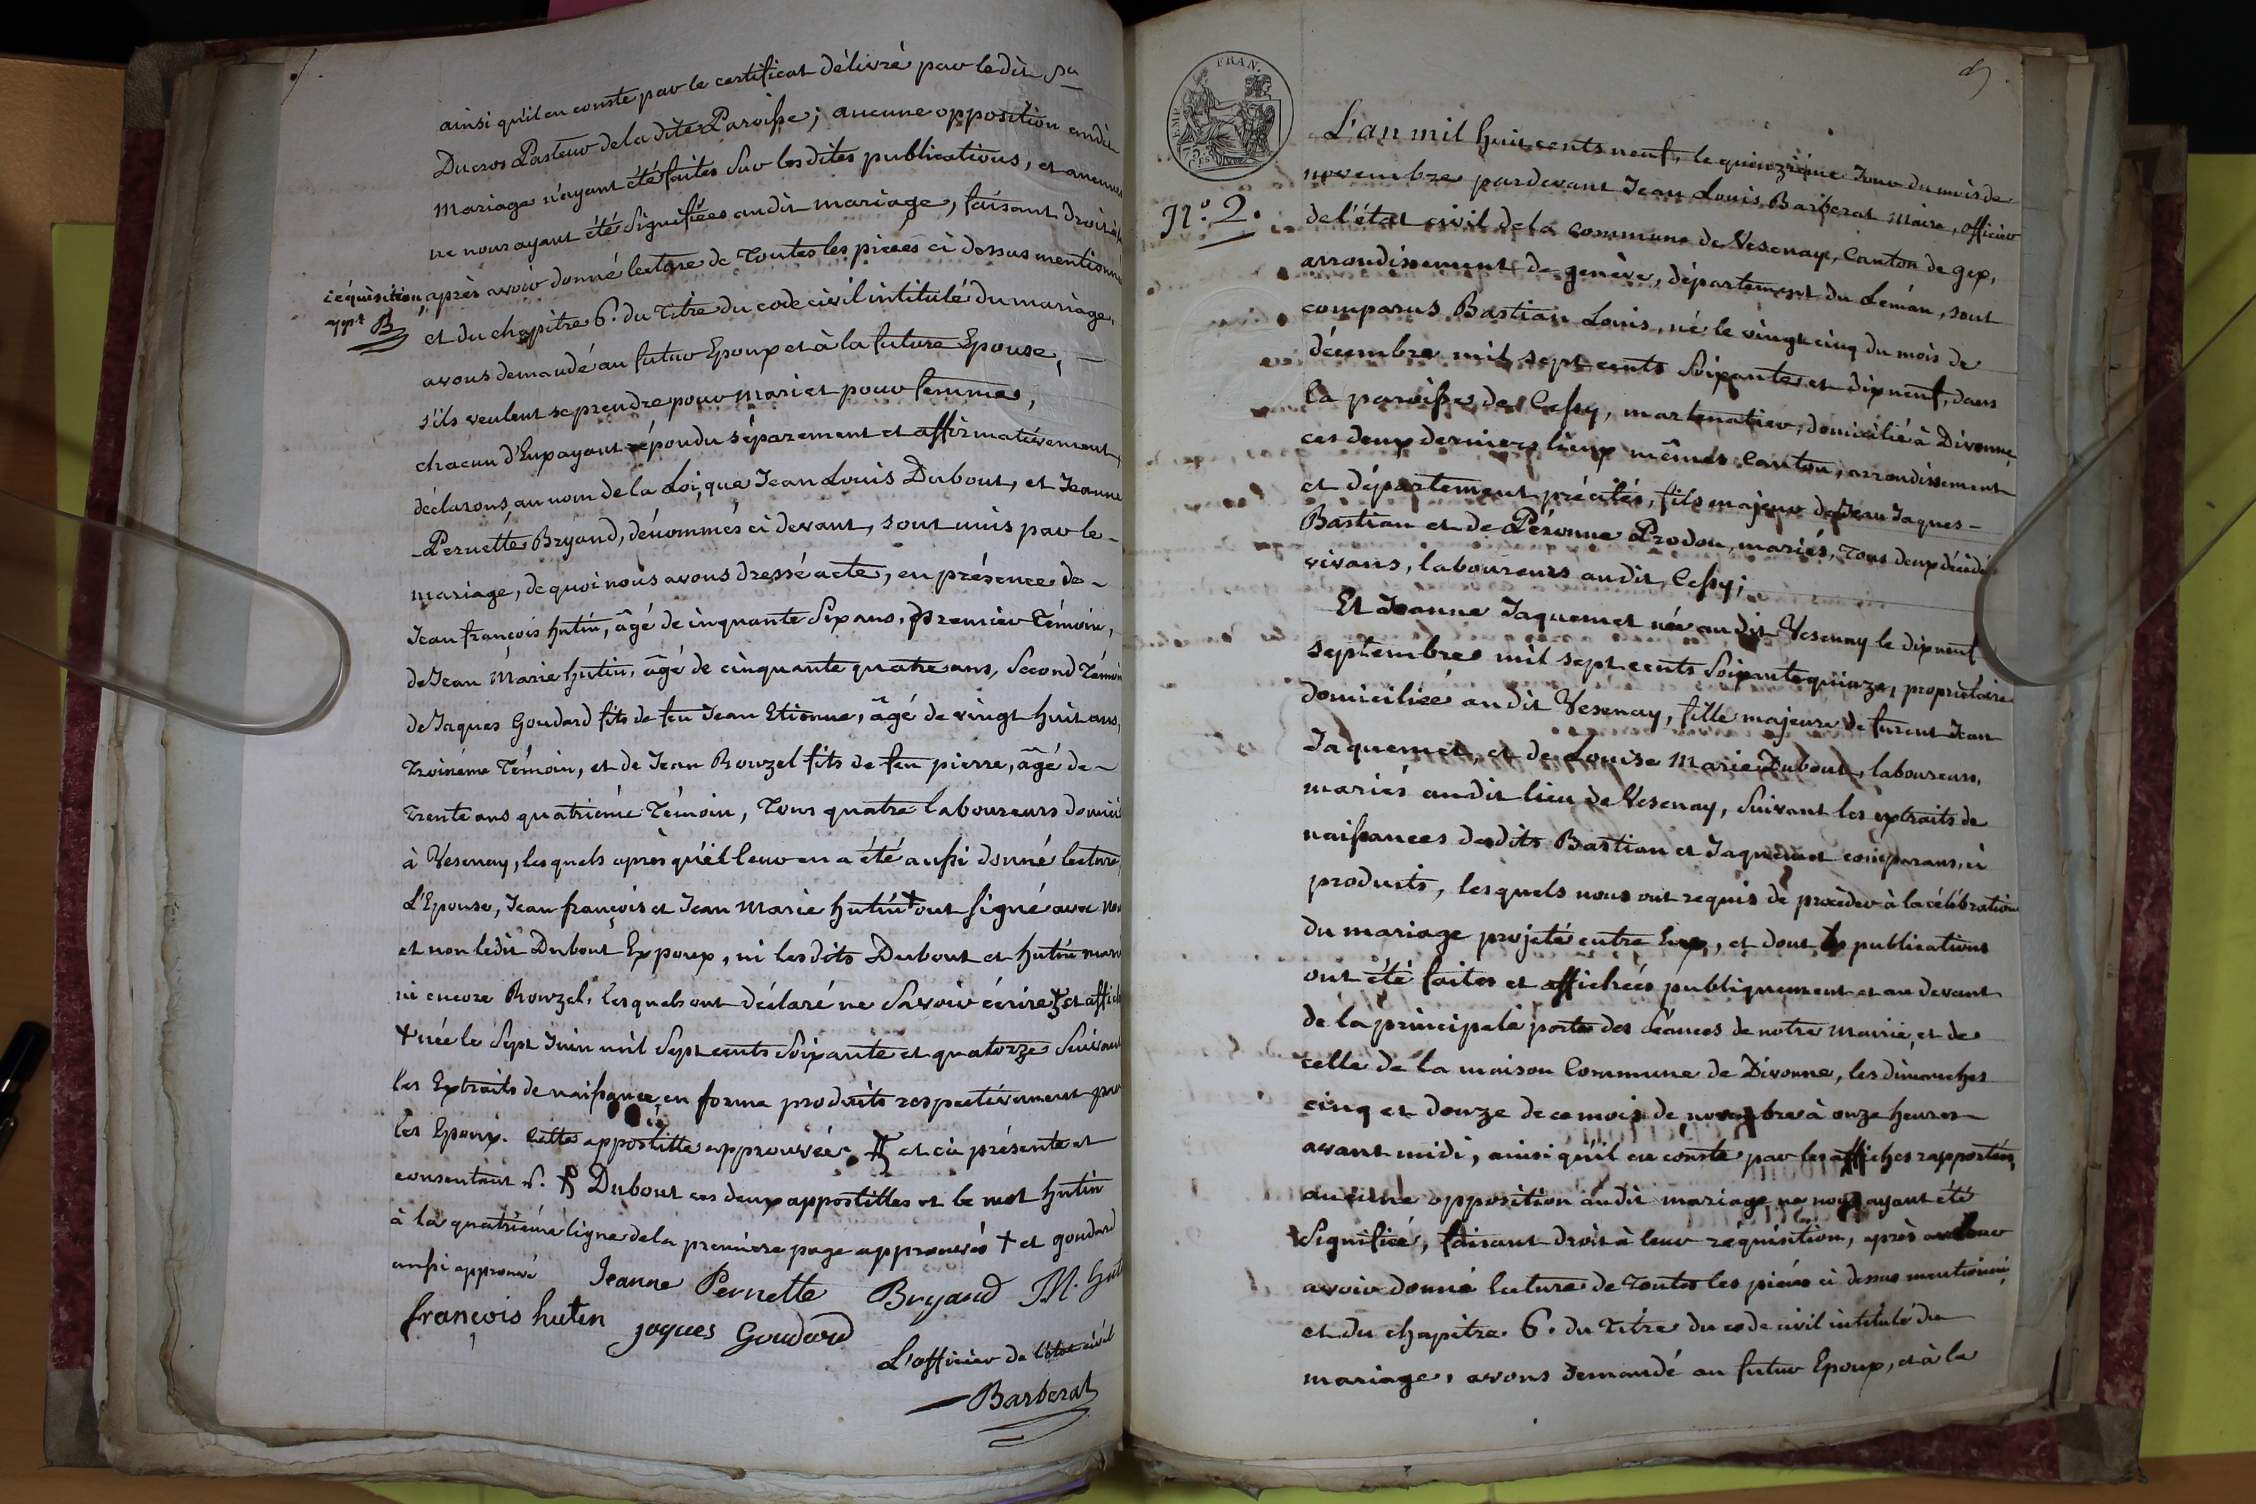 ainsi qu'il en conste par le certificat délivré par ledit Sr
Ducros Pasteur de la dite Paroisse; aucune opposition audit
mariage n'ayant été faites sur les dites publications, et aucunes
ne nous ayant été signifiées audit mariage, faisant droit à la
réquisition, après avoir donné lecture de toutes les pièces ci dessus mentionné
app.t B
et du chapitre 6. du titre du code civil intitulé du mariage,
avons demandé au futur Epoux et à la future Epouse,
s'ils veulent se prendre pour mari et pour femme,
chacun d'Eux ayant répondu séparement et affirmativement,
déclarons au nom de la Loi, que Jean Louis Dubout, et Jeanne
Pernette Bryand, dénommés ci devant, sont unis par le
mariage, de quoi nous avons dressé acte, en présence de
Jean françois hutin, âgé de cinquante Six ans, premier Témoin,
de Jean Marie hutin, âgé de cinquante quatre ans, Second Témoin
de Jaques Goudard fils de feu Jean Etienne, âgé de vingt huit ans,
troisiéme Témoin, et de Jean Rouzel fils de feu pierre, âgé de
trente ans quatriéme Témoin, tous quatre laboureurs domicil
à Vesenay, lesquels après qu'il leur en a été aussi donné lecture,
L'Epouse, Jean françois et Jean Marie hutin + ont signé avec nou
et non ledit Dubout Expoux, ni lesdits Dubout et hutin mari
ni encore Rouzel, lesquels ont déclaré ne Savoir écrire et affich
+ née le Sept Juin mil Sept cents Soixante et quatorze Suivant
les Extraits de naissance, en forme produits respectivement par
les Epoux. cette appostille approuvée. et ci présente et
consentant Dubout ces deux appostilles et le mot hutin
à la quatriéme ligne de la premiere page approuvés + et goudard
aussi approuvé Jeanne Pernette Bryand JM. hut
françois huten jaques Goudard
L'officier de l'état civil
Barberat
L'an mil huit cents neuf, le quinziéme Jour du mois de
novembre pardevant Jean Louis Barberat Maire, officier
N.o 2.
de l'état civil de la commune de Vesenay, Canton de gex,
arrondissement de genève, département du Leman, sont
comparus Bastian Louis, né le vingt cinq du mois de
décembre mil sept cents Soixante et dixneuf, dans
la paroisse de Cessy, domicilié à Divonne
ces deux derniers lieux mêmes Canton, arrondissement
et département précités, fils majeur de Jean Jaques
Bastian et de Péronne Prodon, mariés, tous deux
vivans, laboureurs audit Cessy;
Et Jeanne Jaquemet née audit Vesenay le dixneuf
septembre mil sept cents Soixante quinze, propriétaire
domiciliée audit Vesenay, fille majeure de furent Jean
Jaquemet, et de Louise Marie Dubout, laboureurs,
mariés audit lieu de Vesenay, Suivant les extraits de
naissances desdits Bastian et Jaquemet comparans, ci
produits, lesquels nous ont requis de procéder à la célébration
du mariage projeté entre Eux, et dont les publications
ont été faites et affichées publiquement et au devant
de la principale porte des séances de notre Mairie, et de
celle de la maison Commune de Divonne, les dimanches
cinq et douze de ce mois de novembre à onze heures
avant midi, ainsi qu'il en conste par les affiches rapportées,
aucune opposition audit mariage ne nous ayant été
Signifiée, faisant droit à leur réquisition, après
avoir donné lecture de toutes les pièces ci dessus mentionné
et du chapitre 6. du titre du code civil intitulé du
mariage, avons demandé au futur Epoux, et à la